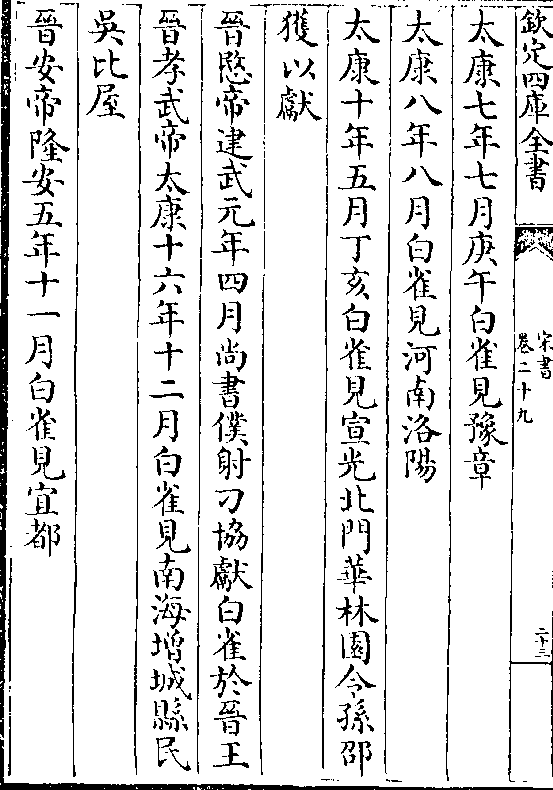 欽定四庫全書
宋書
卷二十九
二十三
太康七年七月庚午白雀見豫章
太康八年八月白雀見河南洛陽
太康十年五月丁亥白雀見宣光北門華林園令孫邵
獲以獻
晉愍帝建武元年四月尚書僕射刁協獻白雀於晉王
晉孝武帝太康十六年十二月白雀見南海增城縣民
吳比屋
晉安帝隆安五年十一月白雀見宜都